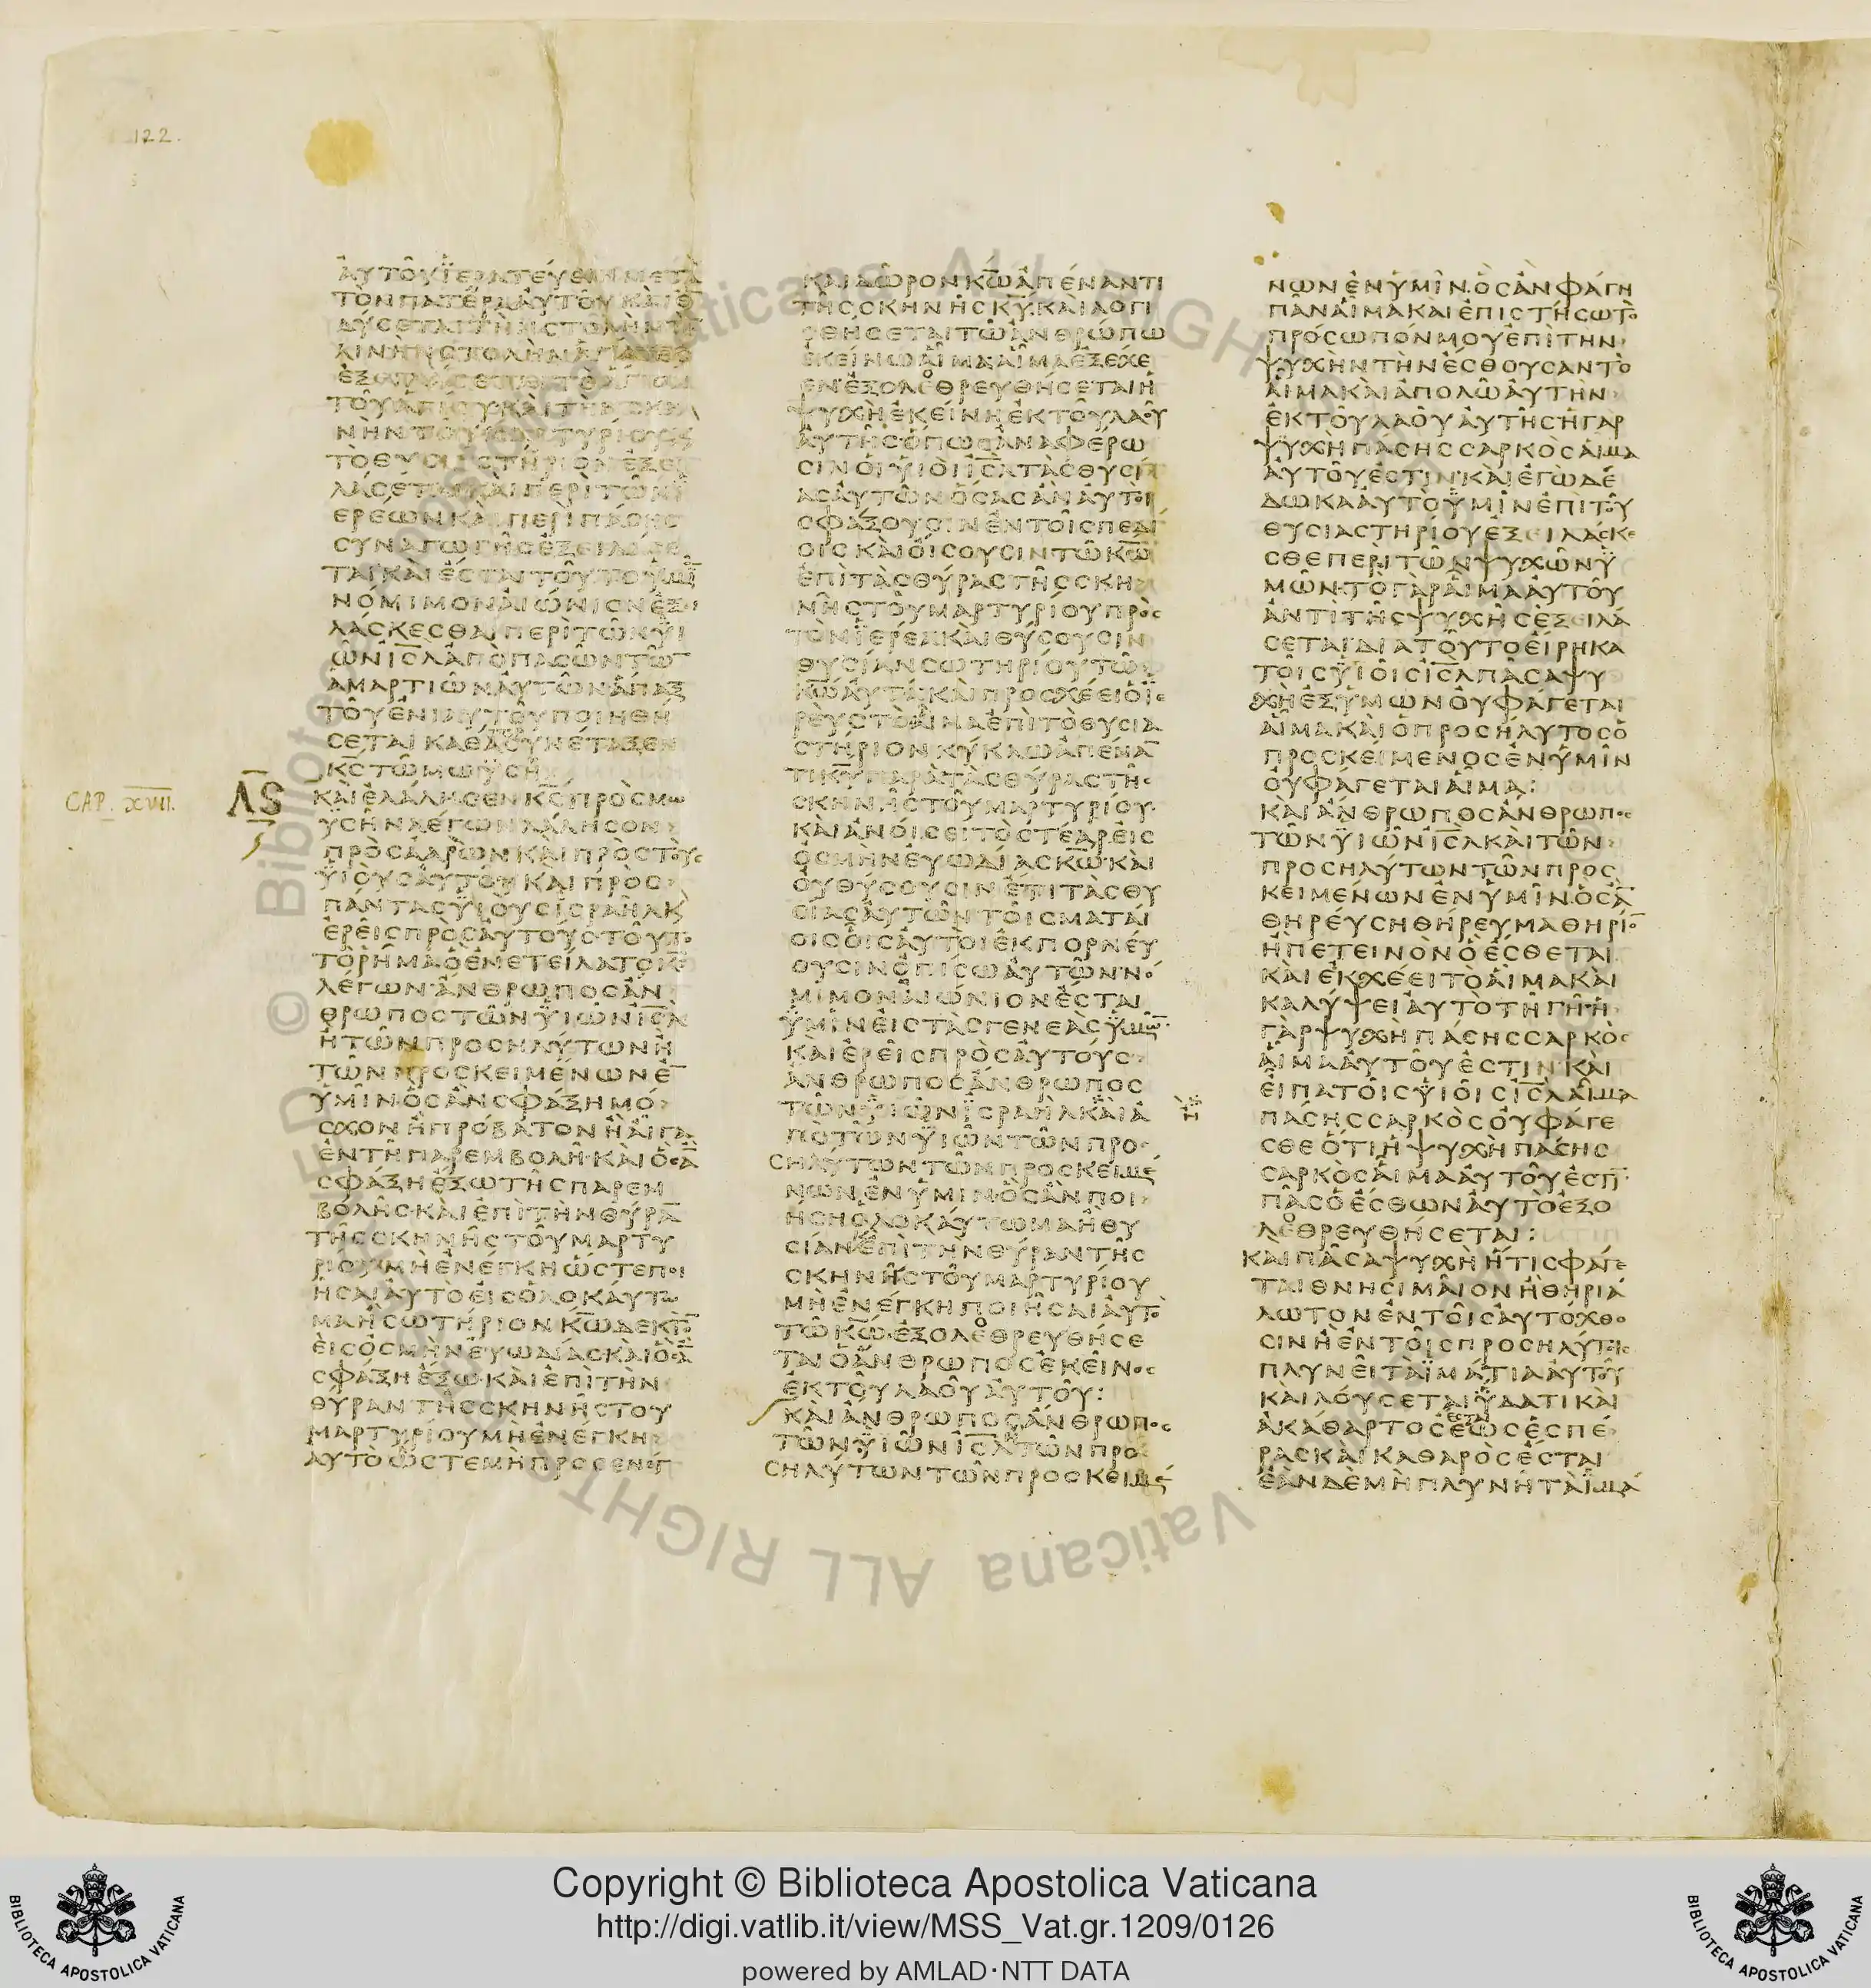 122.
ΑΥΤΟΥ ΪΕΡΑΤΕΥΕΙΝ ΜΕΤΑ
ΤΟΝ ΠΑΤΕΡΑ ΑΥΤΟΥ ΚΑΙ ΕΝ
ΔΥΣΕΤΑΙ ΤΗΝ ΣΤΟΛΗΝ ΤΗΝ
ΛΙΝΗΝ ΣΤΟΛΗΝ ΑΓΙΑΝ
ΤΟΥ ΑΓΙΟΥ ΚΑΙ ΤΗΝ ΣΚΗ
ΝΗΝ ΤΟΥ ΜΑΡΤΥΡΙΟΥ Κ
ΤΟ ΘΥΣΙΑΣΤΗΡΙΟΝ ΕΞΕΙ
ΛΑΣΕΤΑΙ ΚΑΙ ΠΕΡΙ ΤΩΝ Ϊ
ΕΡΕΩΝ ΚΑΙ ΠΕΡΙ ΠΑΣΗΣ
ΣΥΝΑΓΩΓΗΣ ΕΞΕΙΛΑΣΕ
ΤΑΙ ΚΑΙ ΕΣΤΑΙ ΤΟΥΤΟ ΥΜΙ̅
ΝΟΜΙΜΟΝ ΑΙΩΝΙΟΝ ΕΞΙ
ΛΑΣΚΕΣΘΑΙ ΠΕΡΙ ΤΩΝ ΥΙ
ΩΝ ΙΣ̅Λ ΑΠΟ ΠΑΣΩΝ ΤΩ̅
ΑΜΑΡΤΙΩΝ ΑΥΤΩΝ ΑΠΑΞ
ΤΟΥ ΕΝΙΑΥΤΟΥ ΠΟΙΗΘΗ
ΣΕΤΑΙ ΚΑΘΑ ΣΥΝΕΤΑΞΕΝ
Κ̅Σ̅ ΤΩ ΜΩΥΣΗ
CAP. XVII.
Λϛ
ΚΑΙ ΕΛΑΛΗΣΕΝ Κ̅Σ̅ ΠΡΟΣ ΜΩ
ΥΣΗΝ ΛΕΓΩΝ ΛΑΛΗΣΟΝ
ΠΡΟΣ ΑΑΡΩΝ ΚΑΙ ΠΡΟΣ ΤΟΥΣ
ΥΙΟΥΣ ΑΥΤΟΥ ΚΑΙ ΠΡΟΣ
ΠΑΝΤΑΣ ΥΙΟΥΣ ΙΣΡΑΗΛ Κ
ΕΡΕΙΣ ΠΡΟΣ ΑΥΤΟΥΣ ΤΟΥΤΟ
ΤΟ ΡΗΜΑ Ο ΕΝΕΤΕΙΛΑΤΟ Κ̅Σ̅
ΛΕΓΩΝ ΑΝΘΡΩΠΟΣ ΑΝ
ΘΡΩΠΟΣ ΤΩΝ ΥΙΩΝ ΙΣ̅Λ
Η ΤΩΝ ΠΡΟΣΗΛΥΤΩΝ Η
ΤΩΝ ΠΡΟΣΚΕΙΜΕΝΩΝ Ε̅
ΥΜΙΝ ΟΣ ΑΝ ΣΦΑΞΗ ΜΟ
ΣΧΟΝ Η ΠΡΟΒΑΤΟΝ Η ΑΙΓΑ
ΕΝ ΤΗ ΠΑΡΕΜΒΟΛΗ ΚΑΙ ΟΣ Α̅
ΣΦΑΞΗ ΕΞΩ ΤΗΣ ΠΑΡΕΜ
ΒΟΛΗΣ ΚΑΙ ΕΠΙ ΤΗΝ ΘΥΡΑ̅
ΤΗΣ ΣΚΗΝΗΣ ΤΟΥ ΜΑΡΤΥ
ΡΙΟΥ ΜΗ ΕΝΕΓΚΗ ΩΣΤΕ ΠΟΙ
ΗΣΑΙ ΑΥΤΟ ΕΙΣ ΟΛΟΚΑΥΤΩ
ΜΑ Η ΣΩΤΗΡΙΟΝ Κ̅Ω̅ ΔΕΚΤΟ̅
ΕΙΣ ΟΣΜΗΝ ΕΥΩΔΙΑΣ ΚΑΙ ΟΣ Α̅
ΣΦΑΞΗ ΕΞΩ ΚΑΙ ΕΠΙ ΤΗΝ
ΘΥΡΑΝ ΤΗΣ ΣΚΗΝΗΣ ΤΟΥ
ΜΑΡΤΥΡΙΟΥ ΜΗ ΕΝΕΓΚΗ
ΑΥΤΟ ΩΣΤΕ ΜΗ ΠΡΟΣΕΝΕΓ
ΚΑΙ ΔΩΡΟΝ Κ̅Ω̅ ΑΠΕΝΑΝΤΙ
ΤΗΣ ΣΚΗΝΗΣ Κ̅Υ̅ ΚΑΙ ΛΟΓΙ
ΣΘΗΣΕΤΑΙ ΤΩ ΑΝΘΡΩΠΩ
ΕΚΕΙΝΩ ΑΙΜΑ ΑΙΜΑ ΕΞΕΧΕ
ΕΝ ΕΞΟΛΕΘΡΕΥΘΗΣΕΤΑΙ Η
ΨΥΧΗ ΕΚΕΙΝΗ ΕΚ ΤΟΥ ΛΑΟΥ
ΑΥΤΗΣ ΟΠΩΣ ΑΝΑΦΕΡΩ
ΣΙΝ ΟΙ ΥΙΟΙ ΙΣ̅Λ ΤΑΣ ΘΥΣΙ
ΑΣ ΑΥΤΩΝ ΟΣΑΣ ΑΝ ΑΥΤΟΙ
ΣΦΑΞΟΥΣΙΝ ΕΝ ΤΟΙΣ ΠΕΔΙ
ΟΙΣ ΚΑΙ ΟΙΣΟΥΣΙΝ ΤΩ Κ̅Ω̅
ΕΠΙ ΤΑΣ ΘΥΡΑΣ ΤΗΣ ΣΚΗ
ΝΗΣ ΤΟΥ ΜΑΡΤΥΡΙΟΥ ΠΡΟΣ
ΤΟΝ ΪΕΡΕΑ ΚΑΙ ΘΥΣΟΥΣΙΝ
ΘΥΣΙΑΝ ΣΩΤΗΡΙΟΥ ΤΩ
Κ̅Ω̅ ΑΥΤΑ ΚΑΙ ΠΡΟΣΧΕΕΙ Ο Ϊε
ΡΕΥΣ ΤΟ ΑΙΜΑ ΕΠΙ ΤΟ ΘΥΣΙΑ
ΣΤΗΡΙΟΝ ΚΥΚΛΩ ΑΠΕΝΑ̅
ΤΙ Κ̅Υ̅ ΠΑΡΑ ΤΑΣ ΘΥΡΑΣ ΤΗΣ
ΣΚΗΝΗΣ ΤΟΥ ΜΑΡΤΥΡΙΟΥ
ΚΑΙ ΑΝΟΙΣΕΙ ΤΟ ΣΤΕΑΡ ΕΙΣ
ΟΣΜΗΝ ΕΥΩΔΙΑΣ Κ̅Ω̅ ΚΑΙ
ΟΥ ΘΥΣΟΥΣΙΝ ΕΤΙ ΤΑΣ ΘΥ
ΣΙΑΣ ΑΥΤΩΝ ΤΟΙΣ ΜΑΤΑΙ
ΟΙΣ ΟΙΣ ΑΥΤΟΙ ΕΚΠΟΡΝΕΥ
ΟΥΣΙΝ ΟΠΙΣΩ ΑΥΤΩΝ ΝΟ
ΜΙΜΟΝ ΑΙΩΝΙΟΝ ΕΣΤΑΙ
ΥΜΙΝ ΕΙΣ ΤΑΣ ΓΕΝΕΑΣ ΥΜΩ̅
ΚΑΙ ΕΡΕΙΣ ΠΡΟΣ ΑΥΤΟΥΣ
ΑΝΘΡΩΠΟΣ ΑΝΘΡΩΠΟΣ
ΤΩΝ ΥΙΩΝ ΙΣΡΑΗΛ ΚΑΙ Α
ΠΟ ΤΩΝ ΥΙΩΝ ΤΩΝ ΠΡΟ
ΣΗΛΥΤΩΝ ΤΩΝ ΠΡΟΣΚΕΙΜΕ
ΝΩΝ ΕΝ ΥΜΙΝ ΟΣ ΑΝ ΠΟΙ
ΗΣΗ ΟΛΟΚΑΥΤΩΜΑ Η ΘΥ
ΣΙΑΝ ΕΠΙ ΤΗΝ ΘΥΡΑΝ ΤΗΣ
ΣΚΗΝΗΣ ΤΟΥ ΜΑΡΤΥΡΙΟΥ
ΜΗ ΕΝΕΓΚΗ ΠΟΙΗΣΑΙ ΑΥΤΟ
ΤΩ Κ̅Ω̅ ΕΞΟΛΕΘΡΕΥΘΗΣΕ
ΤΑΙ Ο ΑΝΘΡΩΠΟΣ ΕΚΕΙΝΟΣ
ΕΚ ΤΟΥ ΛΑΟΥ ΑΥΤΟΥ:
ΚΑΙ ΑΝΘΡΩΠΟΣ ΑΝΘΡΩΠΟΣ
ΤΩΝ ΥΙΩΝ ΙΣ̅Λ ΤΩΝ ΠΡΟ
ΣΗΛΥΤΩΝ ΤΩΝ ΠΡΟΣΚΕΙΜΕ
ΝΩΝ ΕΝ ΥΜΙΝ ΟΣ ΑΝ ΦΑΓΗ
ΠΑΝ ΑΙΜΑ ΚΑΙ ΕΠΙΣΤΗΣΩ ΤΟ
ΠΡΟΣΩΠΟΝ ΜΟΥ ΕΠΙ ΤΗΝ
ΨΥΧΗΝ ΤΗΝ ΕΣΘΟΥΣΑΝ ΤΟ
ΑΙΜΑ ΚΑΙ ΑΠΟΛΩ ΑΥΤΗΝ
ΕΚ ΤΟΥ ΛΑΟΥ ΑΥΤΗΣ Η ΓΑΡ
ΨΥΧΗ ΠΑΣΗΣ ΣΑΡΚΟΣ ΑΙΜΑ
ΑΥΤΟΥ ΕΣΤΙΝ ΚΑΙ ΕΓΩ ΔΕ
ΔΩΚΑ ΑΥΤΟ ΥΜΙΝ ΕΠΙ ΤΟΥ
ΘΥΣΙΑΣΤΗΡΙΟΥ ΕΞΕΙΛΑΣΚΕ
ΣΘΕ ΠΕΡΙ ΤΩΝ ΨΥΧΩΝ Υ
ΜΩΝ ΤΟ ΓΑΡ ΑΙΜΑ ΑΥΤΟΥ
ΑΝΤΙ ΤΗΣ ΨΥΧΗΣ ΕΞΕΙΛΑ
ΣΕΤΑΙ ΔΙΑ ΤΟΥΤΟ ΕΙΡΗΚΑ
ΤΟΙΣ ΥΙΟΙΣ ΙΣ̅Λ ΠΑΣΑ ΨΥ
ΧΗ ΕΞ ΥΜΩΝ ΟΥ ΦΑΓΕΤΑΙ
ΑΙΜΑ ΚΑΙ Ο ΠΡΟΣΗΛΥΤΟΣ Ο
ΠΡΟΣΚΕΙΜΕΝΟΣ ΕΝ ΥΜΙΝ
ΟΥ ΦΑΓΕΤΑΙ ΑΙΜΑ:
ΚΑΙ ΑΝΘΡΩΠΟΣ ΑΝΘΡΩΠΟΣ
ΤΩΝ ΥΙΩΝ ΙΣ̅Λ ΚΑΙ ΤΩΝ
ΠΡΟΣΗΛΥΤΩΝ ΤΩΝ ΠΡΟΣ
ΚΕΙΜΕΝΩΝ ΕΝ ΥΜΙΝ ΟΣ Α̅
ΘΗΡΕΥΣΗ ΘΗΡΕΥΜΑ ΘΗΡΙΟ̅
Η ΠΕΤΕΙΝΟΝ Ο ΕΣΘΕΤΑΙ
ΚΑΙ ΕΚΧΕΕΙ ΤΟ ΑΙΜΑ ΚΑΙ
ΚΑΛΥΨΕΙ ΑΥΤΟ ΤΗ ΓΗ Η
ΓΑΡ ΨΥΧΗ ΠΑΣΗΣ ΣΑΡΚΟΣ
ΑΙΜΑ ΑΥΤΟΥ ΕΣΤΙΝ ΚΑΙ
ΕΙΠΑ ΤΟΙΣ ΥΙΟΙΣ ΙΣ̅Λ ΑΙΜΑ
ΠΑΣΗΣ ΣΑΡΚΟΣ ΟΥ ΦΑΓΕ
ΣΘΕ ΟΤΙ Η ΨΥΧΗ ΠΑΣΗΣ
ΣΑΡΚΟΣ ΑΙΜΑ ΑΥΤΟΥ ΕΣΤΙ
ΠΑΣ Ο ΕΣΘΩΝ ΑΥΤΟ ΕΞΟ
ΛΕΘΡΕΥΘΗΣΕΤΑΙ:
ΚΑΙ ΠΑΣΑ ΨΥΧΗ ΗΤΙΣ ΦΑΓΕ
ΤΑΙ ΘΝΗΣΙΜΑΙΟΝ Η ΘΗΡΙΑ
ΛΩΤΟΝ ΕΝ ΤΟΙΣ ΑΥΤΟΧΘΟ
ΣΙΝ Η ΕΝ ΤΟΙΣ ΠΡΟΣΗΛΥΤΟΙΣ
ΠΛΥΝΕΙ ΤΑ ΙΜΑΤΙΑ ΑΥΤΟΥ
ΚΑΙ ΛΟΥΣΕΤΑΙ ΥΔΑΤΙ ΚΑΙ
ΑΚΑΘΑΡΤΟΣ ΕΣΤΑΙ ΕΩΣ ΕΣΠΕ
ΡΑΣ ΚΑΙ ΚΑΘΑΡΟΣ ΕΣΤΑΙ
ΕΑΝ ΔΕ ΜΗ ΠΛΥΝΗ ΤΑ ΙΜΑ
Copyright © Biblioteca Apostolica Vaticana
http://digi.vatlib.it/view/MSS_Vat.gr.1209/0126
powered by AMLAD·NTT DATA
BIBLIOTECA APOSTOLICA VATICANA
BIBLIOTECA APOSTOLICA VATICANA